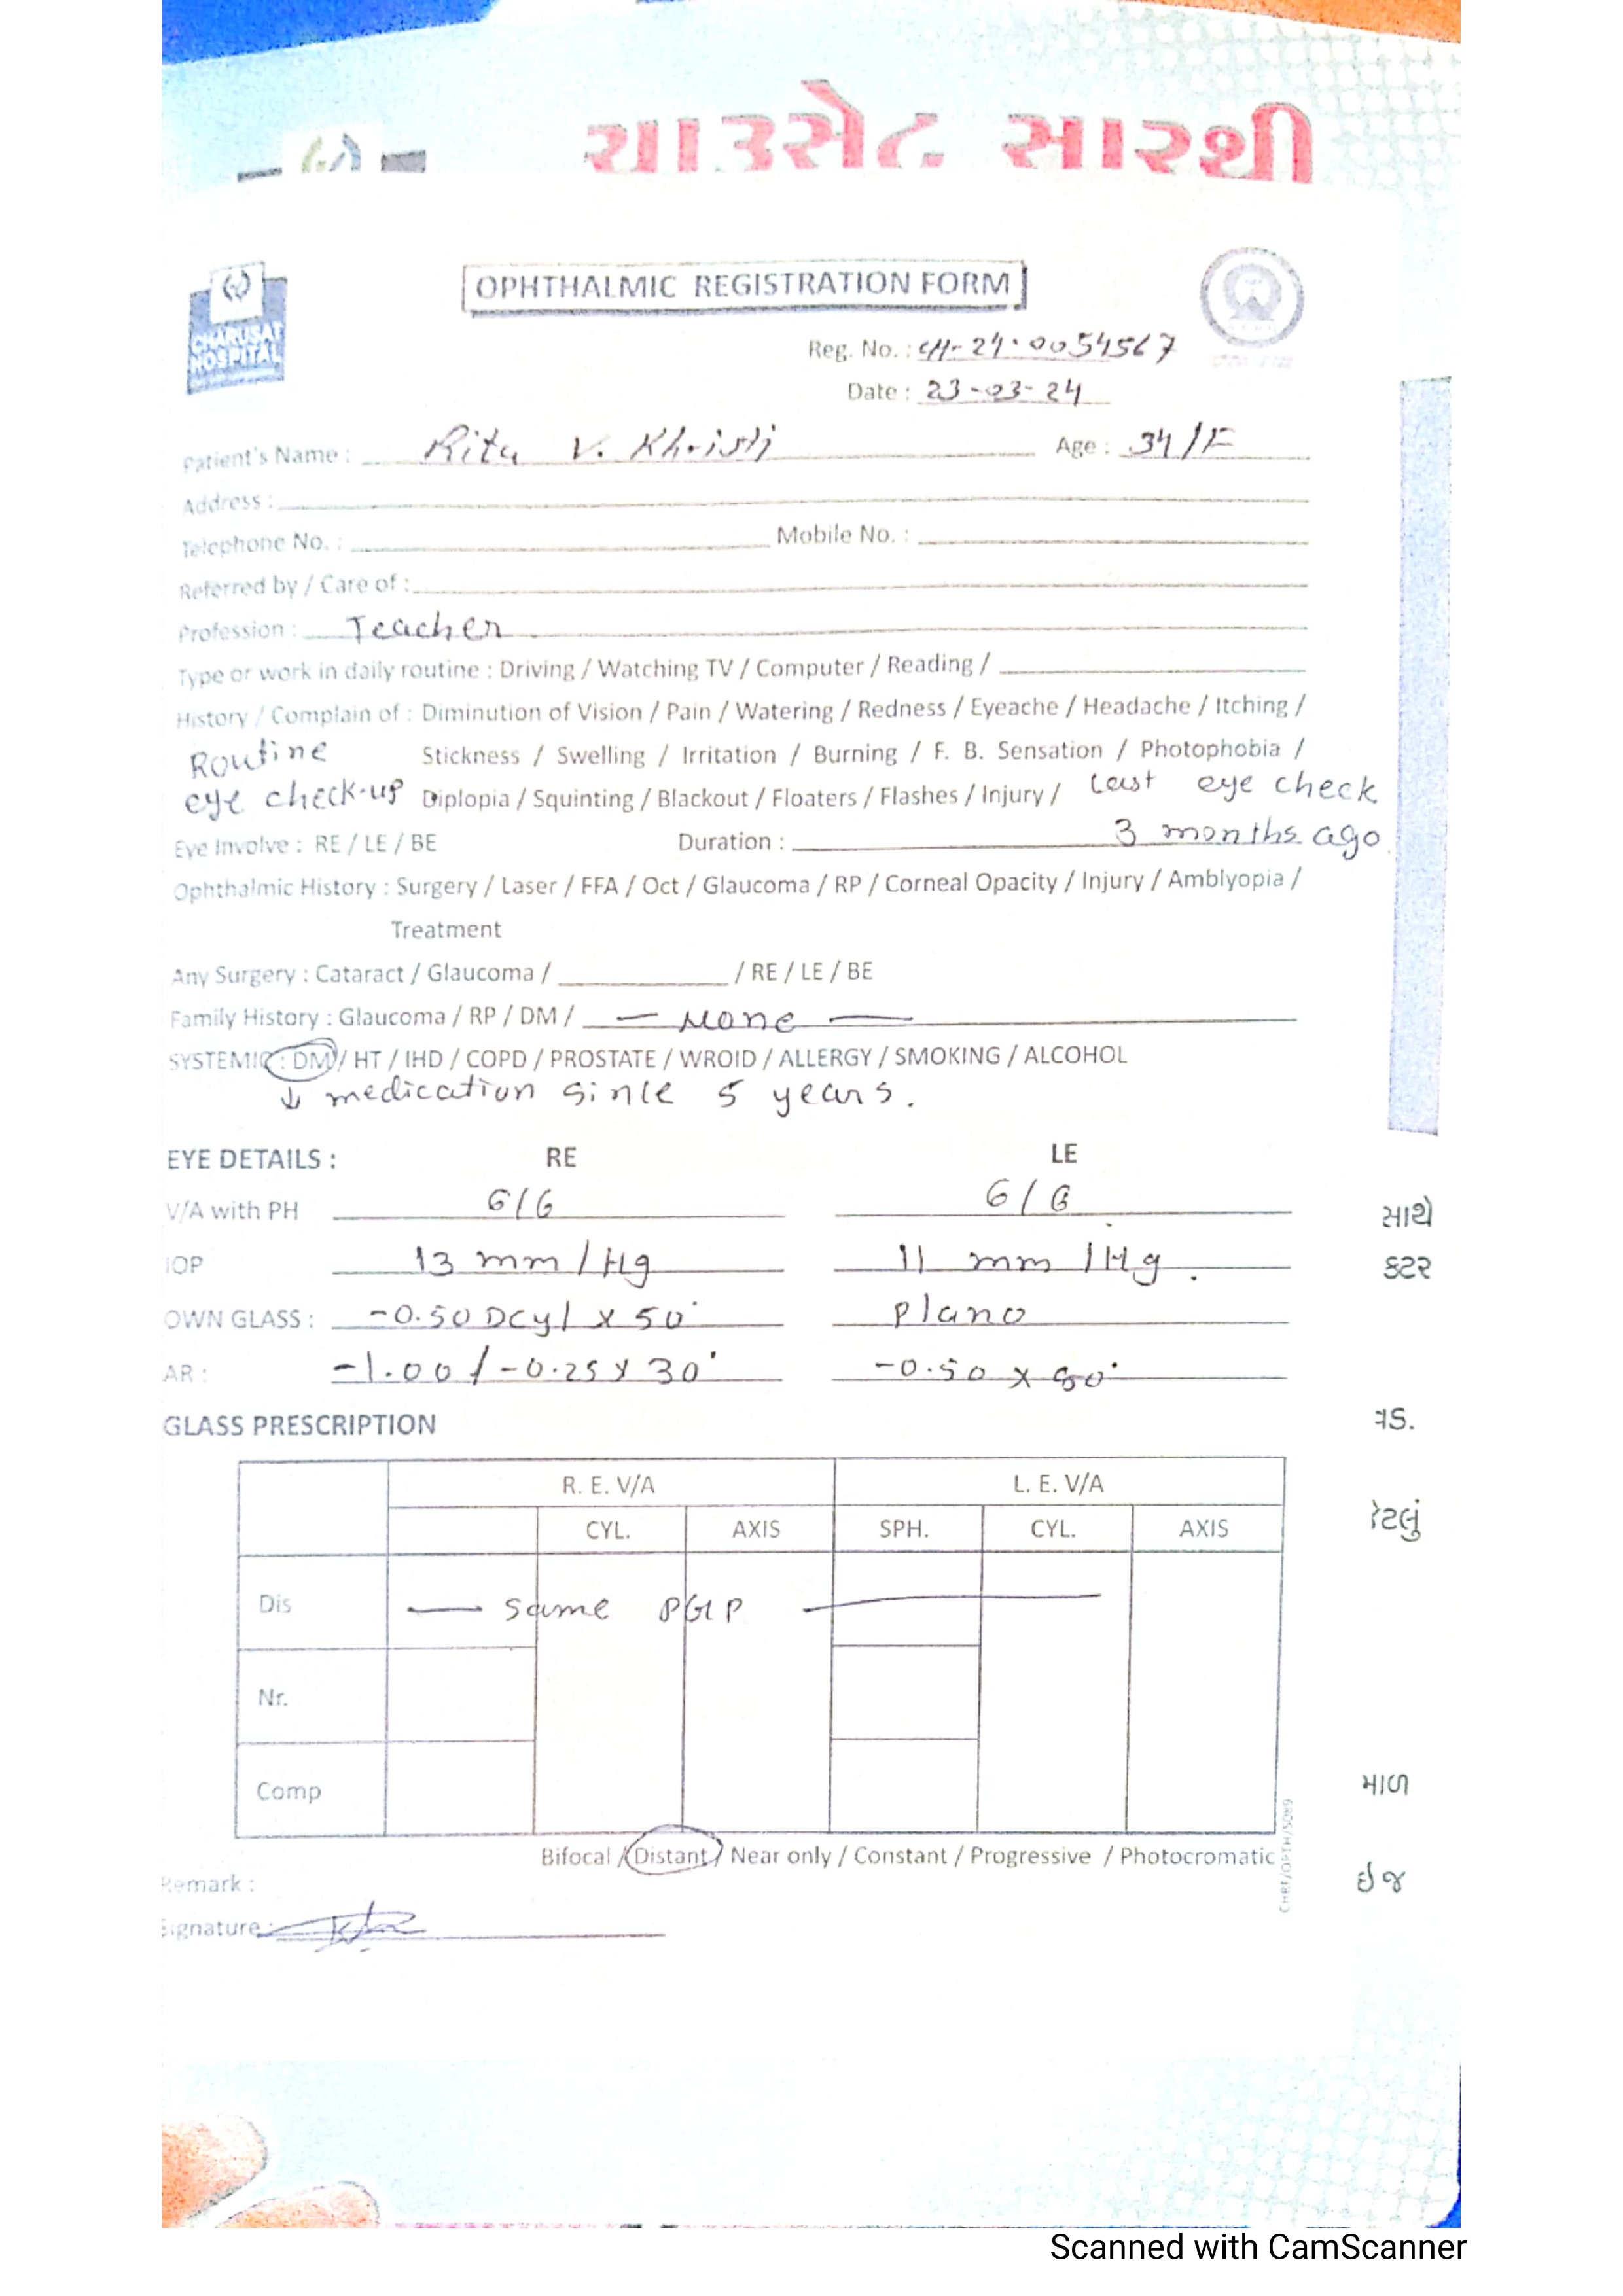 ચાઉસેટ સારથી
CHARUSAT
HOSPITAL
OPHTHALMIC REGISTRATION FORM
Reg. No. : CH-24.0054567
Date : 23-03-24
Patient's Name : Ritu V. Khristi Age : 34/F
Address :
Telephone No. : Mobile No. :
Referred by / Care of :
Profession : Teacher
Type or work in daily routine : Driving / Watching TV / Computer / Reading /
History / Complain of : Diminution of Vision / Pain / Watering / Redness / Eyeache / Headache / Itching /
Routine Stickness / Swelling / Irritation / Burning / F. B. Sensation / Photophobia /
eye check-up Diplopia / Squinting / Blackout / Floaters / Flashes / Injury / Last eye check
Eye Involve : RE / LE / BE Duration : 3 months ago
Ophthalmic History : Surgery / Laser / FFA / Oct / Glaucoma / RP / Corneal Opacity / Injury / Amblyopia /
Treatment
Any Surgery : Cataract / Glaucoma / / RE / LE / BE
Family History : Glaucoma / RP / DM / — None —
SYSTEMIC : DM / HT / IHD / COPD / PROSTATE / WROID / ALLERGY / SMOKING / ALCOHOL
↓ medication since 5 years.
EYE DETAILS : RE LE
V/A with PH 6/6 6/6 સાથે
IOP 13 mm/Hg 11 mm/Hg. કટર
OWN GLASS : -0.50 Dcyl x 50° plano
AR : -1.00/-0.25 x 30° -0.50 x 80°
GLASS PRESCRIPTION
R. E. V/A L. E. V/A
CYL. AXIS SPH. CYL. AXIS
Dis — same PGP —
Nr.
Comp માળ
Bifocal / Distant / Near only / Constant / Progressive / Photocromatic
CHRF/OPTH/5089
ઇજ
Remark :
Signature :
Scanned with CamScanner